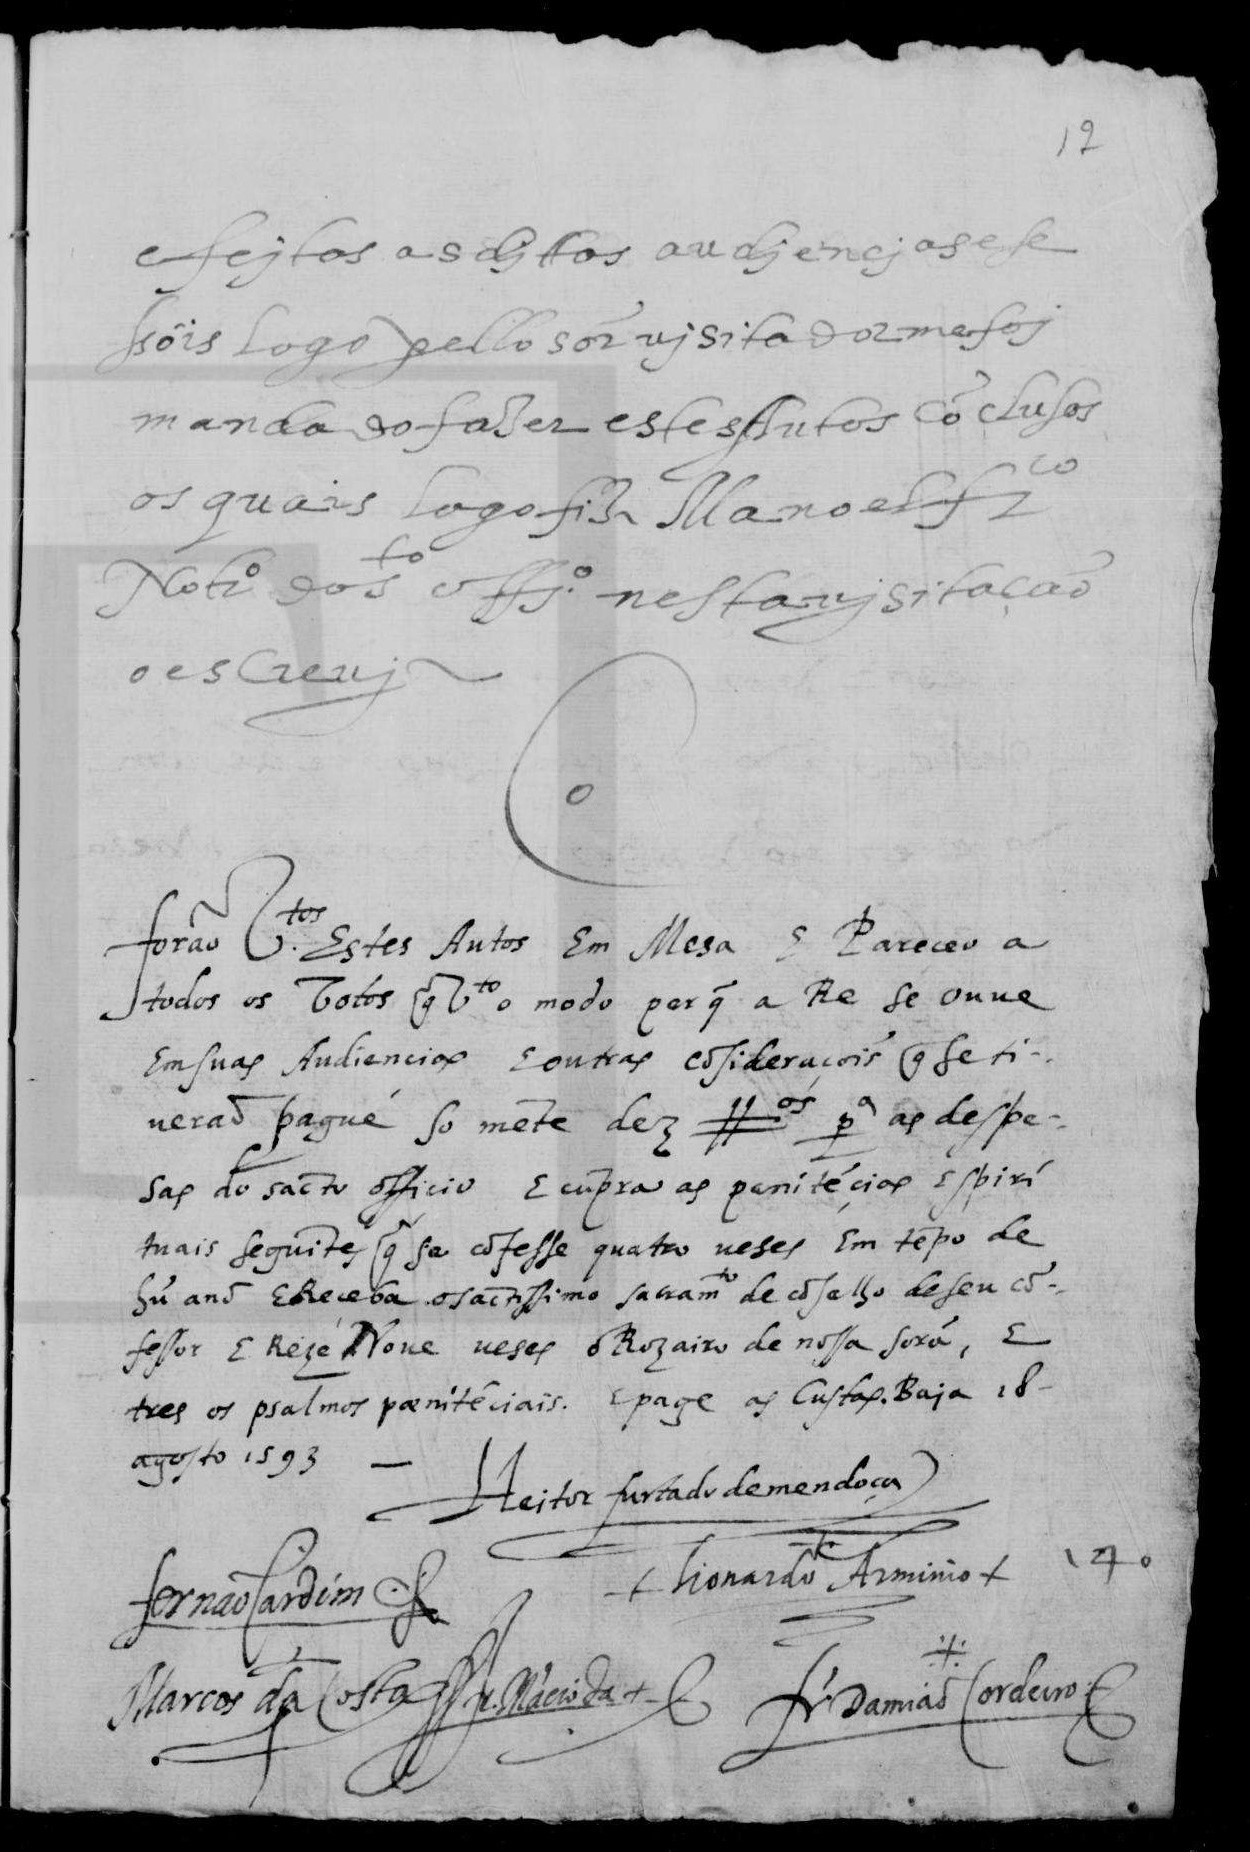 12
e feitos as dittas audjencjas e se
ssõis logo pello sõr vjsitador me foj
mandado fazer estes Autos cõclusos
os quais logo fiz Manoel frco
Notro do sto offjo nesta vjsitação
o escrevj
forão vtos Estes Autos Em Mesa E Pareceo a
todos os votos q̃ vto o modo per q̃ a Re se ouue
Em suas Audiencias E outras cõsideraçõis q̃ se ti-
uerão pague so mẽte dez ##os pa as despe-
sas do sacto officio E cũpra as penitẽcias Espiri
tuais seguĩtes q̃ se cõfesse quatro ueses Em tẽpo de
hũ anõ E Receba o sactissimo sacramto de cõselho de seu cõ-
fessor E Reze Noue ueses o Rozairo de nossa sorã, E
tres os psalmos pœnitẽciais. E page as Custas. Baja 18-
agosto 1593 —
Heitor furtado de mendoça
fernão Cardim
+ Lionardo Arminio +
140
Marcos da Costa
fr. Damião Cordeiro